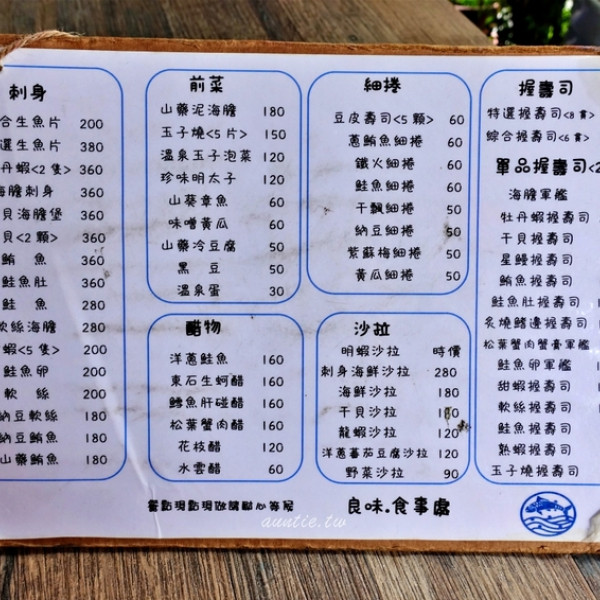 刺身
合生魚片 200
選生魚片 380
丹蝦<2隻> 360
海膽刺身 360
貝海膽堡 360
貝<2顆> 360
鮪魚 360
鮭魚肚 360
鮭魚 280
軟絲海膽 280
蝦<5隻> 200
鮭魚卵 200
軟絲 200
納豆軟絲 180
納豆鮪魚 180
山藥鮪魚 180
前菜
山藥泥海膽 180
玉子燒<5片> 150
溫泉玉子泡菜 120
珍味明太子 120
山葵章魚 60
味噌黃瓜 60
山藥冷豆腐 50
黑豆 50
溫泉蛋 30
醋物
洋蔥鮭魚 160
東石生蚵醋 160
鱈魚肝碰醋 160
松葉蟹肉醋 160
花枝醋 120
水雲醋 60
細捲
豆皮壽司<5顆> 60
蔥鮪魚細捲 60
鐵火細捲 60
鮭魚細捲 60
干瓢細捲 50
納豆細捲 50
紫蘇梅細捲 50
黃瓜細捲 50
沙拉
明蝦沙拉 時價
刺身海鮮沙拉 280
海鮮沙拉 180
干貝沙拉 180
龍蝦沙拉 120
洋蔥蕃茄豆腐沙拉 120
野菜沙拉 90
握壽司
特選握壽司<8貫>
綜合握壽司<6貫>
單品握壽司<2
海膽軍艦
牡丹蝦握壽司
干貝握壽司
星鰻握壽司
鮪魚握壽司
鮭魚肚握壽司
炙燒鰭邊握壽司
松葉蟹肉蟹膏軍艦
鮭魚卵軍艦
甜蝦握壽司
軟絲握壽司
鮭魚握壽司
熟蝦握壽司
玉子燒握壽司
餐點現點現做請耐心等候
良味.食事處
auntie.tw